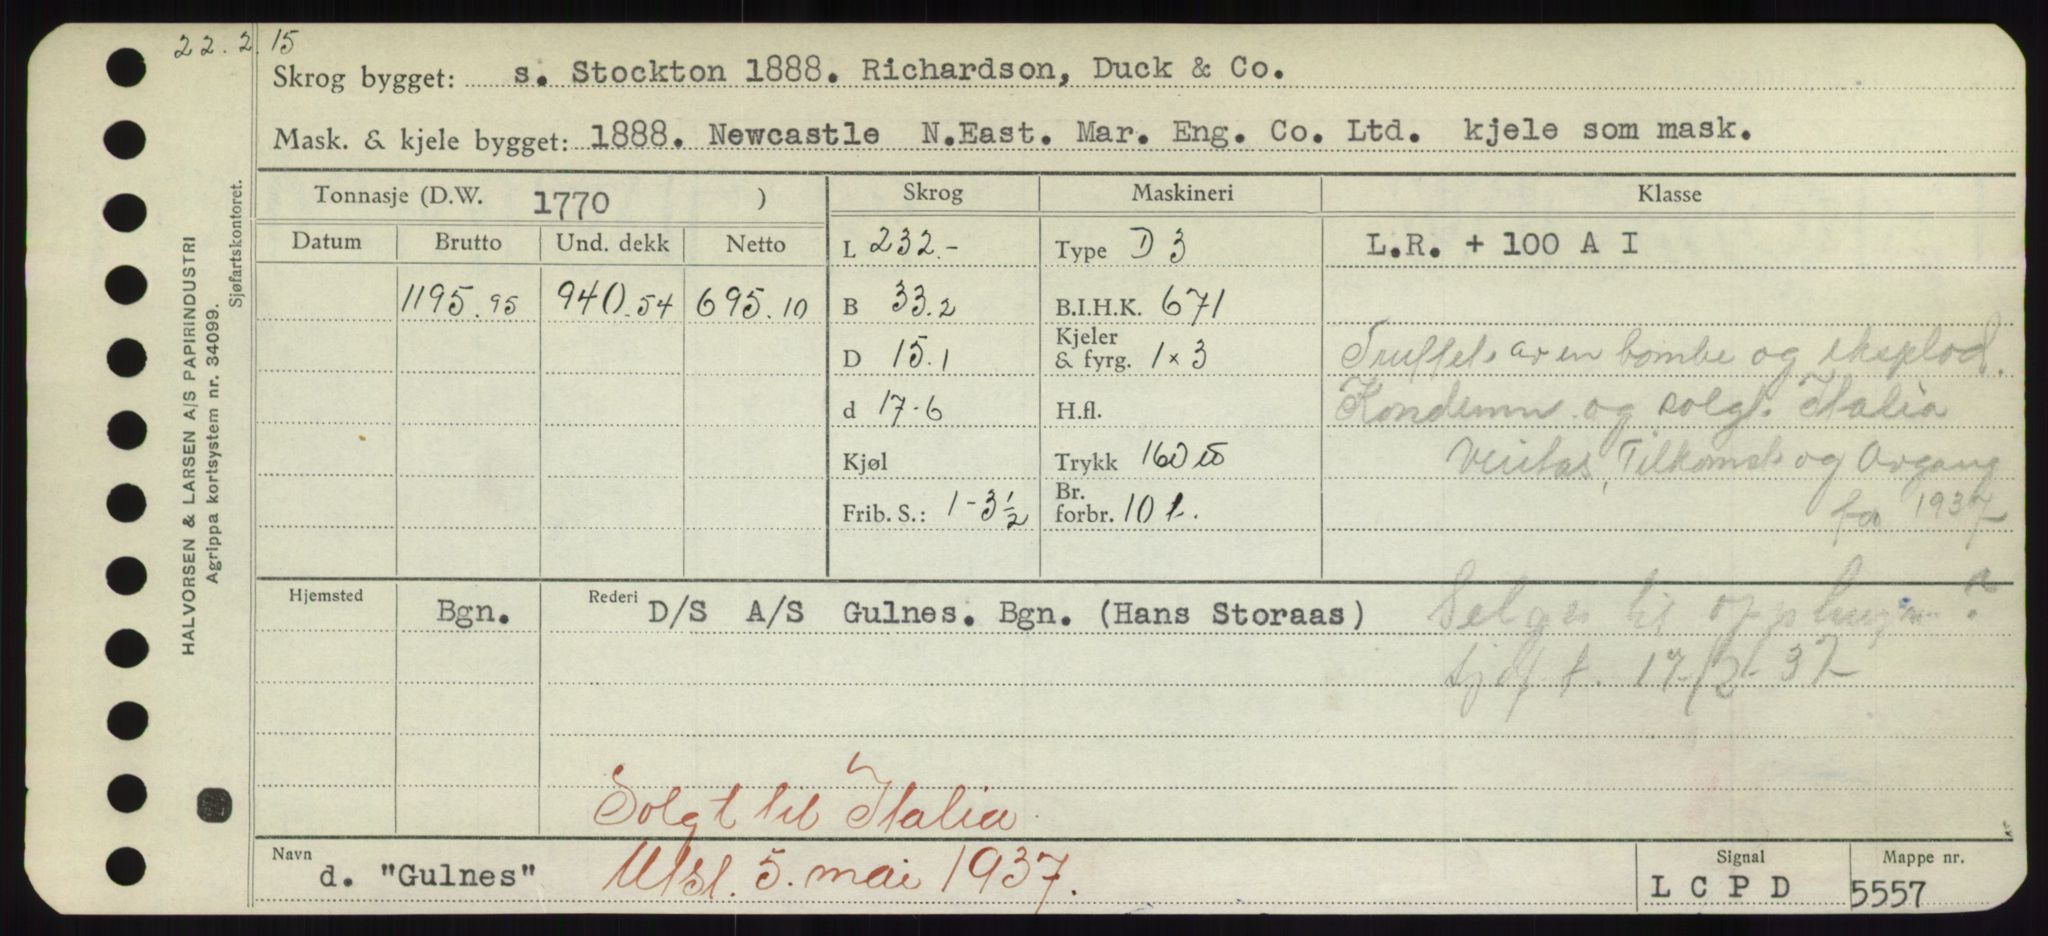 22.2.15
Skrog bygget: s. Stockton 1888. Richardson, Duck & Co.
Mask. & kjele bygget: 1888. Newcastle N.East. Mar. Eng. Co. Ltd. kjele som mask.
Tonnasje (D.W. 1770 )
Datum Brutto Und. dekk Netto
1195.95 940.54 695.10
Skrog
L 232.-
B 33.2
D 15.1
d 17-6
Kjøl
Frib. S.: 1-3½
Maskineri
Type D 3
B.I.H.K. 671
Kjeler
& fyrg. 1 x 3
H.fl.
Trykk 160 lb
Br.
forbr. 10 t.
Klasse
L.R. + 100 A I
Truffet av en bombe og eksplod.
Kondemn. og solgt. Italia
Veritas, Tilkomst og Avgang
for 1937
Hjemsted Bgn.
Rederi D/S A/S Gulnes. Bgn. (Hans Storaas)
Selges til opphugn. ?
Sjøf.t. 17/2-37
Solgt til Italia
Utsl. 5. mai 1937.
Navn
d. "Gulnes"
Signal
L C P D
Mappe nr.
5557
HALVORSEN & LARSEN A/S PAPIRINDUSTRI
Agrippa kortsystem nr. 34099.
Sjøfartskontoret.